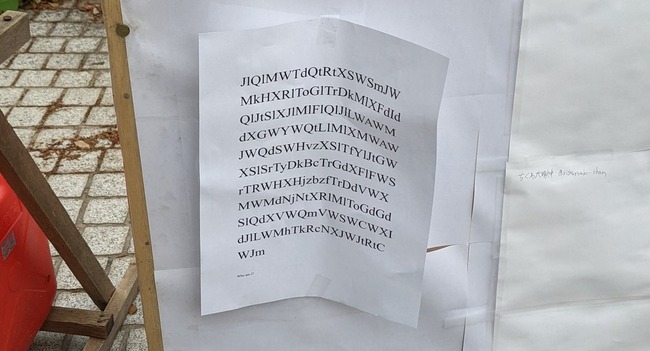 JlQlMWTdQtRtXSWSmJW
MkHXRlToGlTrDkMlXFdId
QlJtSlXJlMlFlQlJlLWAWM
dXGWYWQtLlMlXMWAW
JWQdSWHvzXSlTfYlJtGW
XSlSrTyDkBcTrGdXFlFWS
rTRWHXHjzbzfTrDdVWX
MWMdNjNtXRlMlToGdGd
SlQdXVWQmVWSWCWXI
dJlLWMhTkRcNXJWJtRtC
WJm
Who am I?